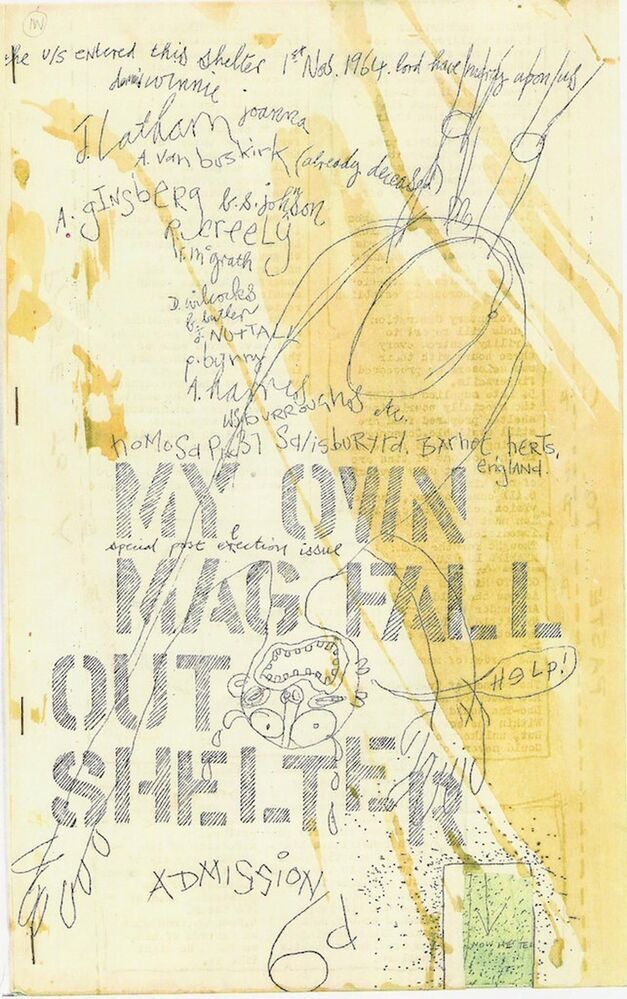 the u/s entered this shelter 1st Nov. 1964. lord have mercy upon us
winnie
J. Latham joanna
A. van buskirk (already deceased)
A. gINSbERG b.s. johnson
R. creely
T. mcgrath
D. wilcocks
b. butler
J. NUTTALL
p. byrny
A. 
WSbURROUghs etc.
hoMoSaP, 37 Salisbury rd. BARnet hERTs,
england.
MY OWN
special post election issue
MAG FALL
OUT
HELp!
SHELTER
ADMISSION
6d
NOW HE TE